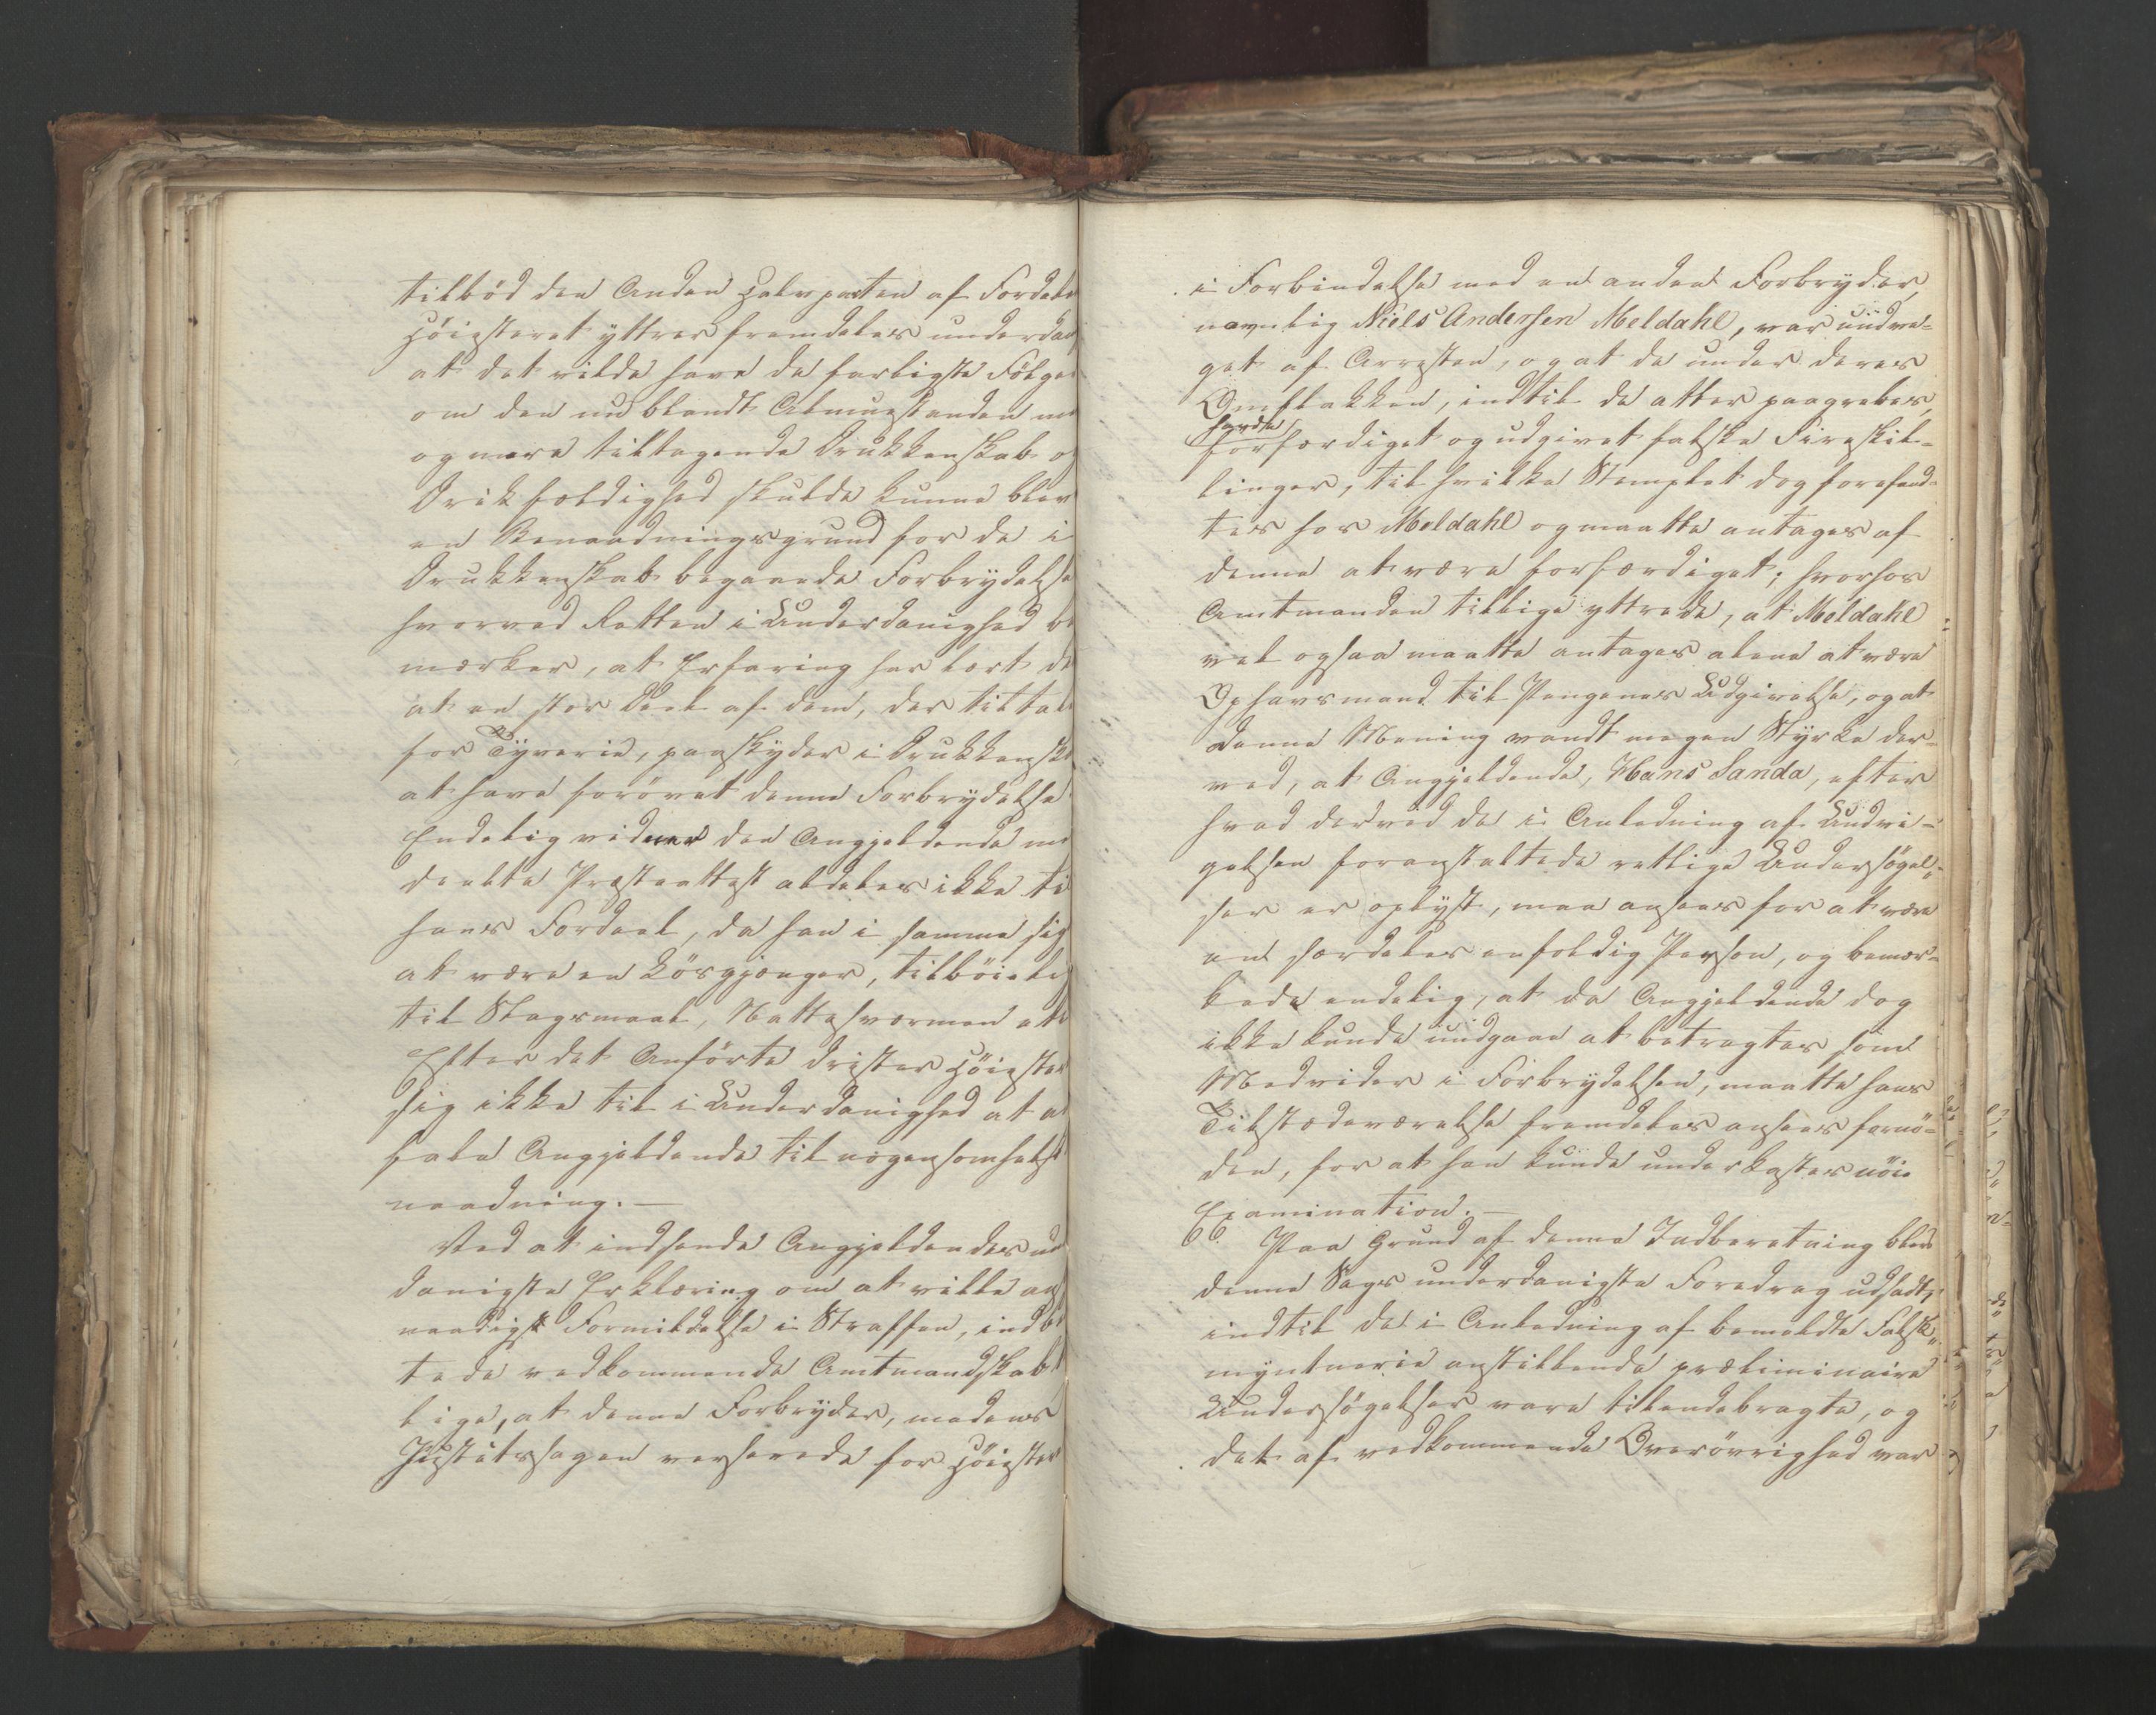 tilbød den Anden Halvparten af Fordele
Höiesteret yttrer fremdeles underdan
at det vilde have de farligste Fölger
om den nu blandt Almuestanden me
og mere tiltagende Drukkenskab o
Drikfældighed skulde kunne blev
en Benaadningsgrund for de i
Drukkenskab begaaede Forbrydelse
hvorved Retten i Underdanighed be
mærker, at Erfaring har lært de
at en stor Deel af dem, der tiltal
for Tyverie, paaskyder i Drukkensk
at have forövet denne Forbrydelse
Endelig vidner den Angjeldende me
deelte Præsteattest aldeles ikke ti
hans Fordeel, da han i samme sig
at være en Lösgjænger, tilböielig
til Slagsmaal, Nattesværmen etc
Efter det Anförte drister Höieste
sig ikke til i Underdanighed at a
fale Angjeldende til nogensomhelst
naadning. —
Ved at indsende Angjeldendes un
danigste Erklæring om at ville an
naadigst Formildelse i Straffen, indbe
tede vedkommende Amtmandskab
lige, at denne Forbryder, medens
Justitssagen verserede for Höieste
i Forbindelse med en anden Forbryder,
navnlig Niels Andersen Meldahl, var undve-
get af Arresten, og at de under deres
Omflakken, indtil de atter paagrebes,
havde
forfærdiget og udgivet falske Fireskil-
linger, til hvilke Stemplet dog forefand-
tes hos Meldahl og maatte antages af
denne at være forfærdiget; hvorhos
Amtmanden tillige yttrede, at Meldahl
vel ogsaa maatte antages alene at være
Ophavsmand til Pengenes Udgivelse, og at
denne Mening vandt megen Styrke der-
ved, at Angjeldende, Hans Sanda, efter
hvad derved de i Anledning af Undvi-
gelsen foranstaltede retlige Undersøgel-
ser er oplyst, maa ansees for at være
en særdeles enfoldig Person, og bemær-
kede endelig, at da Angjeldende dog
ikke kunde undgaae at betragtes som
Medvider i Forbrydelsen, maatte hans
Tilstedeværelse fremdeles ansees fornö-
den, for at han kunde underkastes nöie
Examination. —
66 Paa Grund af denne Indberetning blev
denne Sags underdanigste Foredrag udsadt,
indtil de i Anledning af bemeldte Falsk-
myntnerie anstillende præliminaire
Undersögelser vare tilendebragte, og
det af vedkommende Overövrighed var